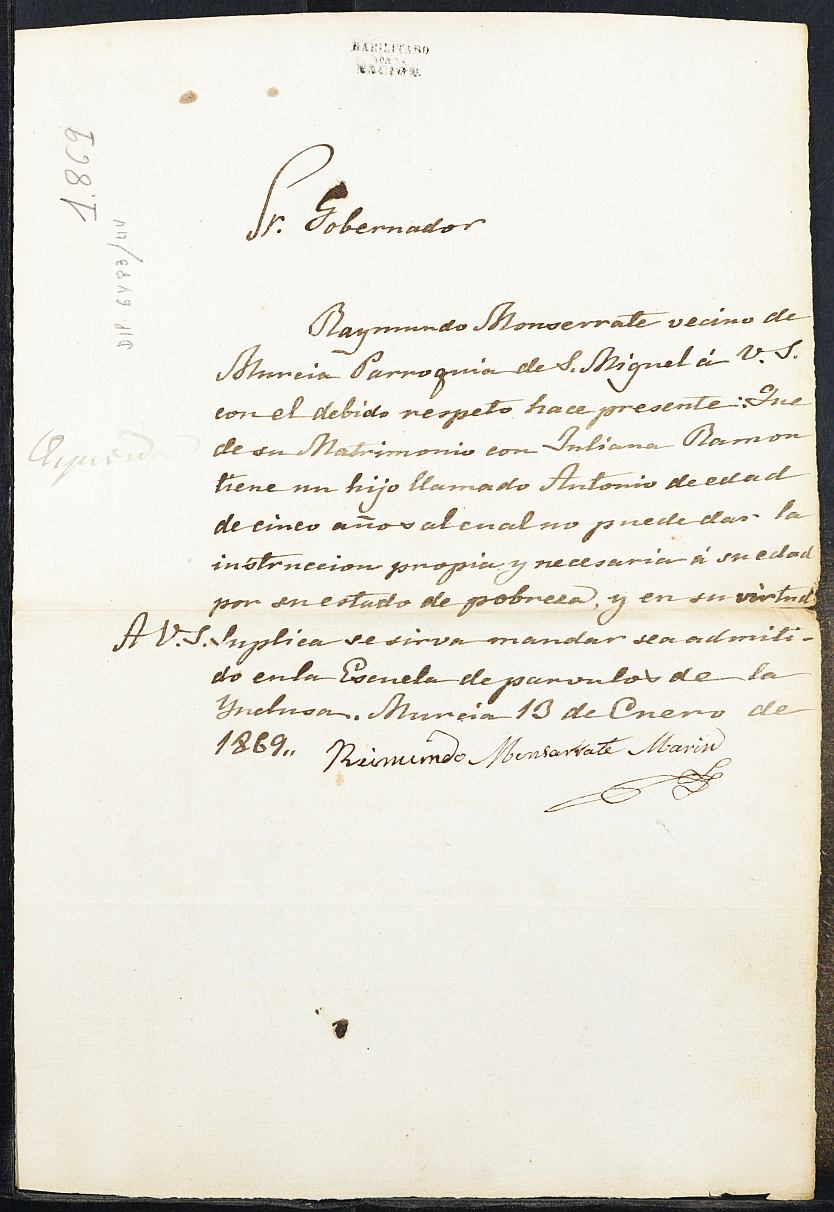 HABILITADO
POR LA
NACION.
1.869
DIP. 6483/
Sr. Gobernador
Raymundo Monserrate vecino de
Murcia Parroquia de S. Miguel á V. S.
con el debido respeto hace presente: Que
de su Matrimonio con Juliana Ramon
tiene un hijo llamado Antonio de edad
de cinco años al cual no puede dar la
instruccion propia y necesaria á su edad
por su estado de pobreza, y en su virtud
A V. S. Suplica se sirva mandar sea admiti-
do en la Escuela de parvulos de la
Ynclusa. Murcia 13 de Enero de
1869.,
Reimundo Monsarrate Marin